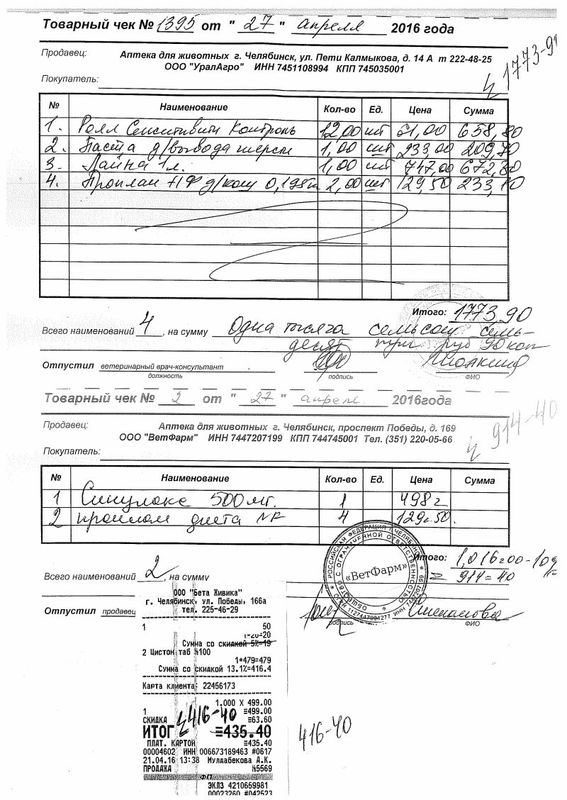 Товарный чек № 1395 от " 27 " апреля 2016 года
Продавец: Аптека для животных г. Челябинск, ул. Пети Калмыкова, д. 14 А т 222-48-25
ООО "УралАгро" ИНН 7451108994 КПП 745035001
Покупатель:
1773-9
№ Наименование Кол-во Ед. Цена Сумма
1. Роял Сенситивити Контроль 12,00 шт 61,00 658,80
2. Паста д/вывода шерсти 1,00 шт 233,00 209,70
3. Лайна 1л. 1,00 шт 747,00 672,30
4. Проплан НФ д/кош 0,195 2,00 шт 129,50 233,10
Итого: 1773,90
Всего наименований 4, на сумму Одна тысяча семьсот семь-
десят три руб 90 коп
Отпустил ветеринарный врач-консультант
должность подпись ФИО
Товарный чек № 2 от " 27 " апреля 2016года
Продавец: Аптека для животных г. Челябинск, проспект Победы, д. 169
ООО "ВетФарм" ИНН 7447207199 КПП 744745001 Тел. (351) 220-05-66
Покупатель:
914-40
№ Наименование Кол-во Ед. Цена Сумма
1 Синулокс 500 мг. 1 498
2 проплан диета NF 4 129.50
Итого: 1,016=00-10%
= 914=40
Всего наименований 2, на сумму
Отпустил продавец
подпись ФИО
«ВетФарм»
ООО "Вета Живика"
г. Челябинск, ул. Победы, 166а
тел. 225-46-29
1 50
1*20=20
Сумма со скидкой 5%=19
2 Цистон таб №100
1*479=479
Сумма со скидкой 13.1%=416.4
Карта клиента: 22456173
1.000 X 499.00
1 ≡499.00
СКИДКА ≡63.60
416-40
ИТОГ ≡435.40
ПЛАТ. КАРТОЙ ≡435.40
00004602 ИНН 006673189463 #0617
21.04.16 13:38 Муллабекова А.К.
ПРОДАЖА №5569
ФП
ЭКЛЗ 4210659981
00023260 #042523
416-40